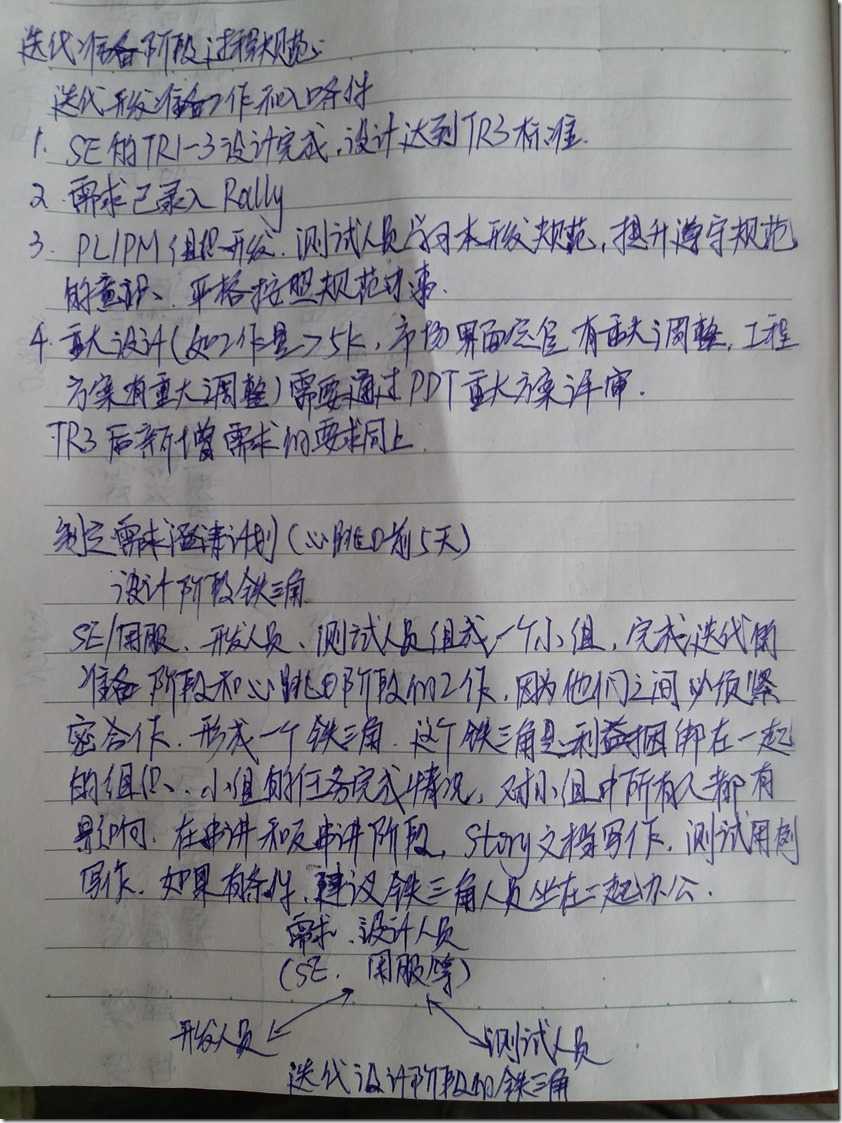 迭代准备阶段过程规范:
迭代开发准备工作和入口条件
1. SE的TR1-3设计完成,设计达到TR3标准.
2. 需求已录入 Rally
3. PL/PM组织开发、测试人员学习本开发规范,提升遵守规范
的意识、严格按照规范办事.
4. 重大设计(如工作量>5k,市场界面定位有重大调整,工程
方案有重大调整)需要通过PDT重大方案评审.
TR3后新增需求的要求同上.
制定需求澄清计划(心跳0前5天)
设计阶段铁三角
SE/用服、开发人员、测试人员组成一个小组,完成迭代的
准备阶段和心跳0阶段的工作,因为他们之间必须紧
密合作.形成一个铁三角.这个铁三角是利益捆绑在一起
的组织、小组的任务完成情况,对小组中所有人都有
影响.在串讲和反串讲阶段,Story文档写作.测试用例
写作.如果有条件,建议铁三角人员坐在一起办公.
需求、设计人员
(SE、用服等)
开发人员 测试人员
迭代设计阶段的铁三角